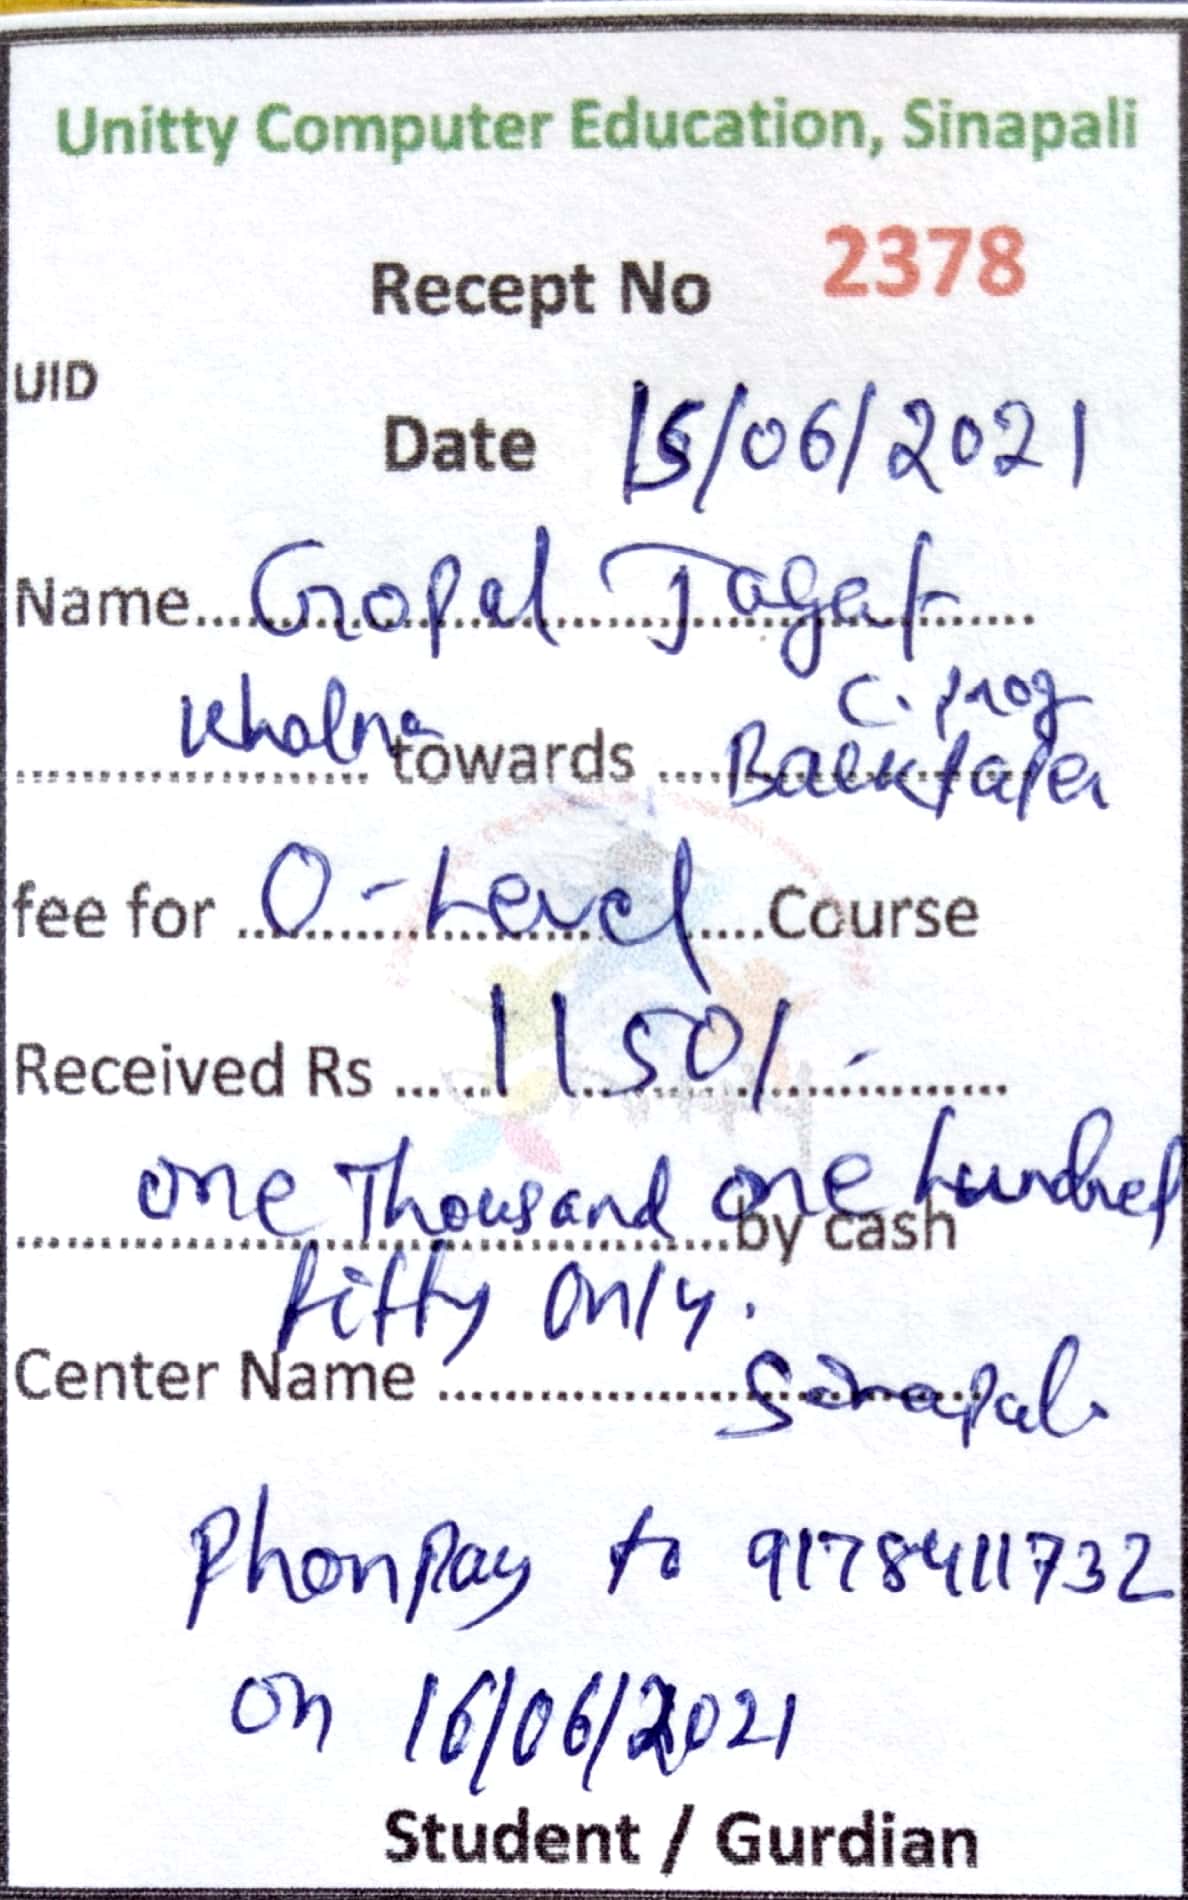 Unitty Computer Education, Sinapali
Recept No 2378
UID
Date 15/06/2021
Name Gopal Jagat
C. prog
Kholna towards Backpaper
fee for O-Level Course
Received Rs 1150/-
one Thousand one hundred
by cash
fifty only.
Center Name Sinapali
Phonpay to 9178411732
on 16/06/2021
Student / Gurdian